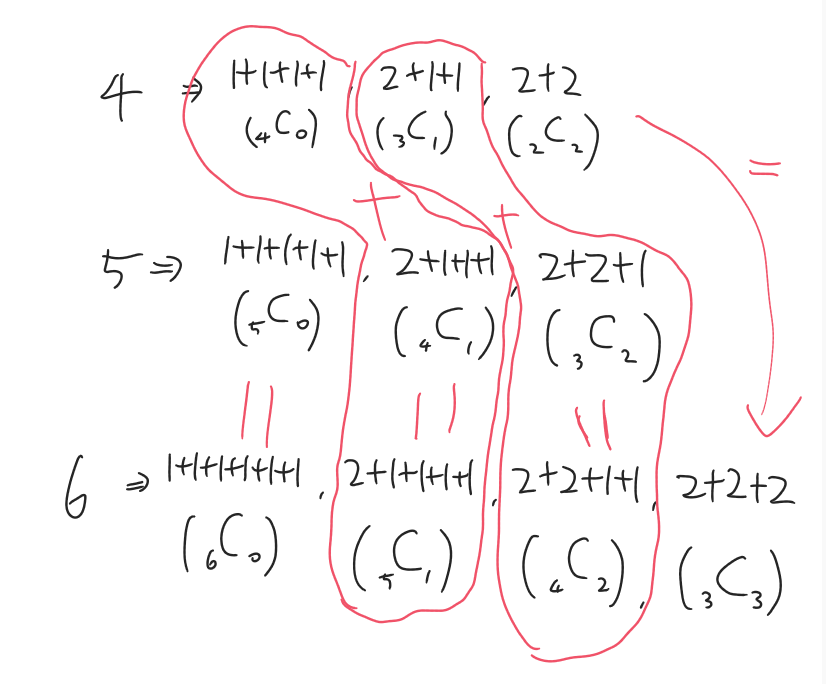 4 ⇒ 1+1+1+1, 2+1+1, 2+2
(₄C₀) (₃C₁) (₂C₂)
+ + =
5 ⇒ 1+1+1+1+1, 2+1+1+1, 2+2+1
(₅C₀) (₄C₁) (₃C₂)
= = =
6 ⇒ 1+1+1+1+1+1, 2+1+1+1+1, 2+2+1+1, 2+2+2
(₆C₀) (₅C₁) (₄C₂), (₃C₃)